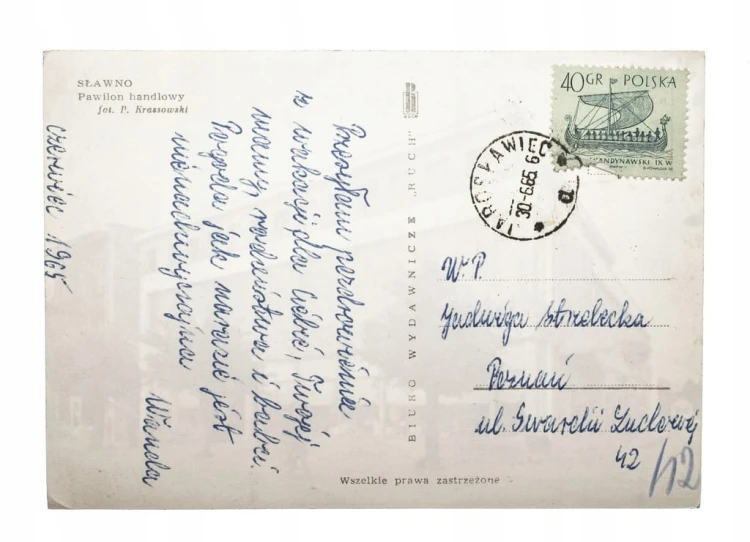 SŁAWNO
Pawilon handlowy
fot. P. Krassowski
czerwiec 1965
Przesyłam pozdrowienia
z wakacji dla Ciebie, Twojej
mamy, rodzeństwa i babci.
Pogoda jak narazie jest
Wanda
BIURO WYDAWNICZE „RUCH"
40 GR POLSKA
SKANDYNAWSKI. IX W
JAROSŁAWIEC
30.-6.65. 6
a
W.P.
Jadwiga Strzelecka
Poznań
ul. Gwardii Ludowej
42
/12
Wszelkie prawa zastrzeżone